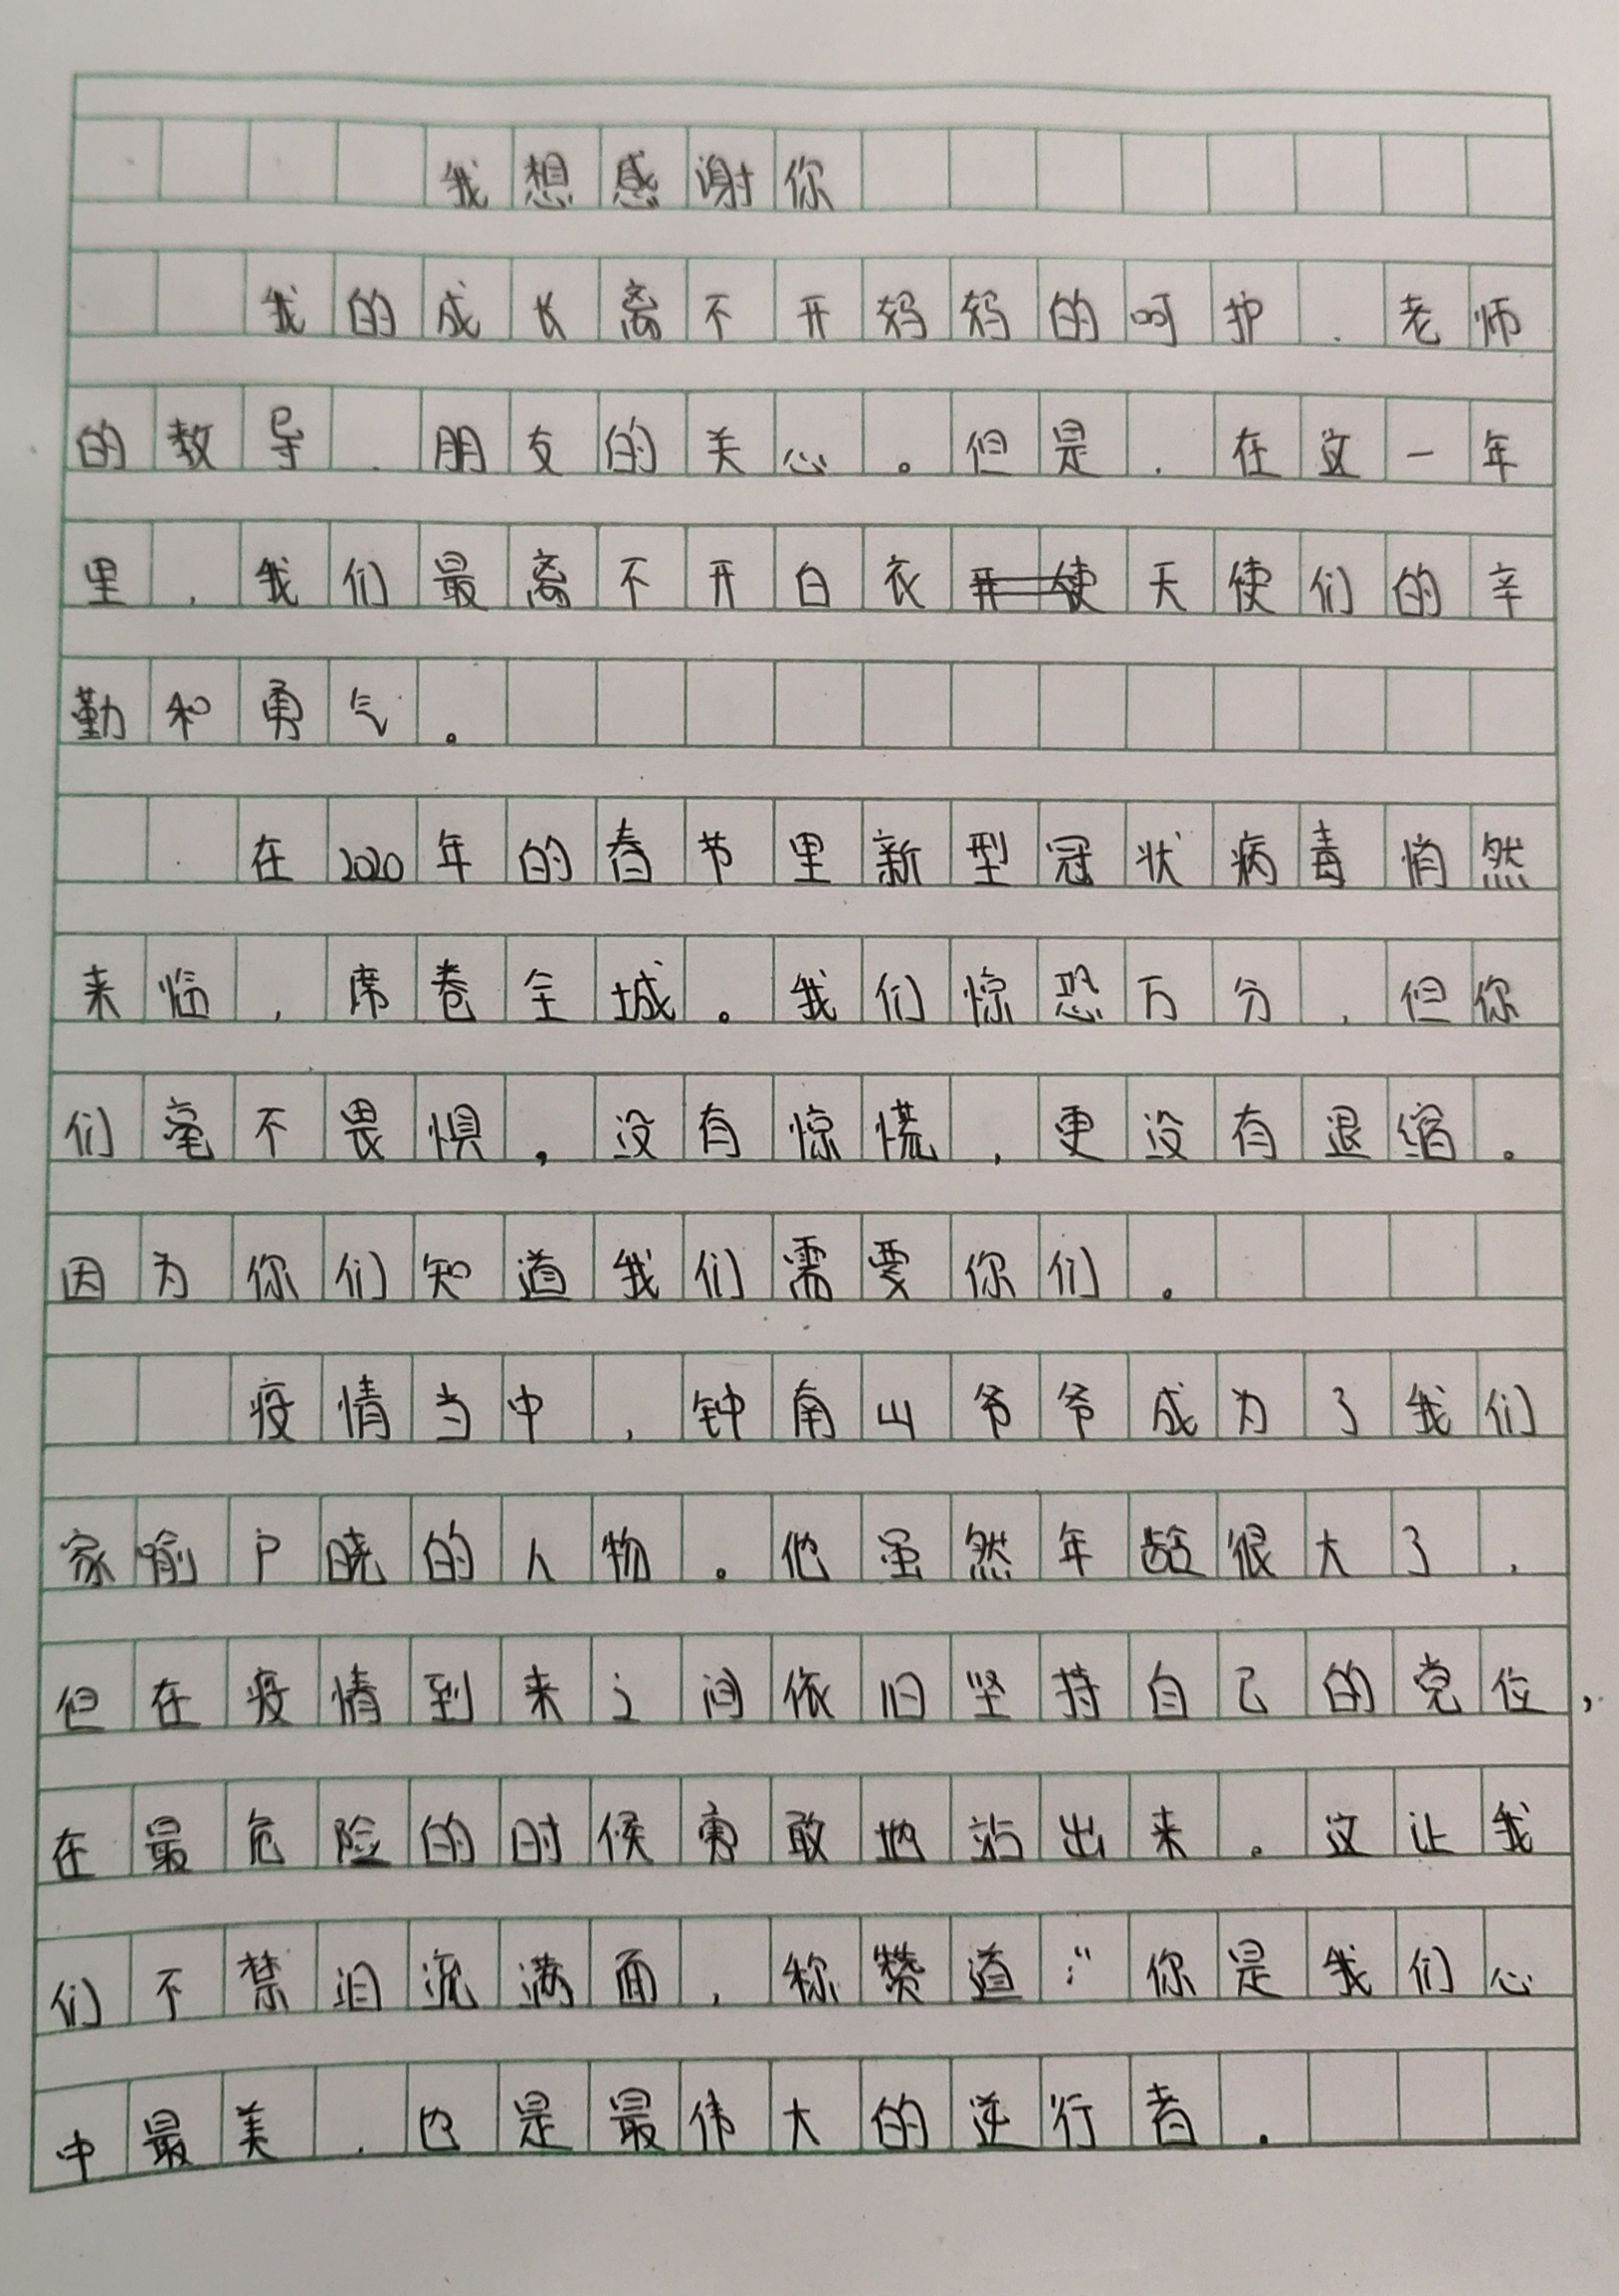 我想感谢你
我的成长离不开妈妈的呵护、老师
的教导、朋友的关心。但是，在这一年
里，我们最离不开白衣天使们的辛
勤和勇气。
在2020年的春节里新型冠状病毒悄然
来临，席卷全城。我们惊恐万分，但你
们毫不畏惧，没有惊慌，更没有退缩。
因为你们知道我们需要你们。
疫情当中，钟南山爷爷成为了我们
家喻户晓的人物。他虽然年龄很大了，
但在疫情到来之间依旧坚持自己的党位，
在最危险的时候勇敢地站出来。这让我
们不禁泪流满面，称赞道：“你是我们心
中最美、也是最伟大的逆行者。